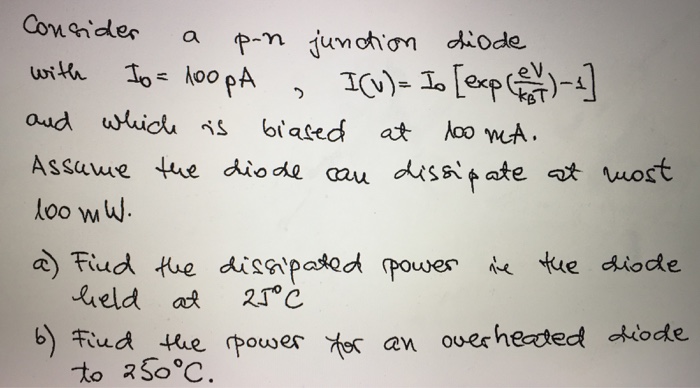 Consider a p-n junction diode
with I₀ = 100 pA , I(V) = I₀ [exp(eV/k_BT) - 1]
and which is biased at 100 mA.
Assume the diode can dissipate at most
100 mW.
a) Find the dissipated power in the diode
held at 25°C
b) Find the power for an overheated diode
to 250°C.